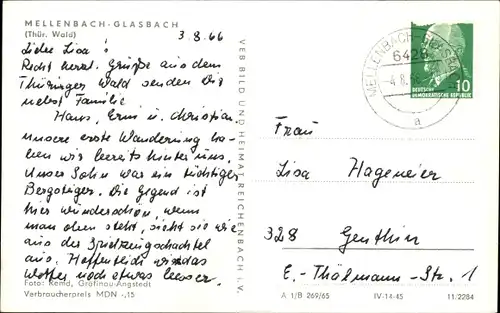 MELLENBACH-GLASBACH
(Thür. Wald)
3.8.66
Liebe Lisa!
Recht herzl. Grüße aus dem
Thüringer Wald senden Dir
nebst Familie
Hans, Erni u. Christian.
Unsere erste Wanderung ha-
ben wir bereits hinter uns.
Unser Sohn war ein tüchtiger
Bergsteiger. Die Gegend ist
hier wunderschön, wenn
man oben steht, sieht sie wie
aus der Spielzeugschachtel
aus. Hoffentlich wird das
Wetter noch etwas besser.
Foto: Remd, Gräfinau-Angstedt
Verbraucherpreis MDN -,15
VEB BILD UND HEIMAT REICHENBACH i. V.
MELLENBACH-GLASBACH
6428
-4.8.66
a
10
DEUTSCHE
DEMOKRATISCHE REPUBLIK
Frau
Lisa Hagemeier
328 Genthin
E.-Thälmann-Str. 1
A 1/B 269/65 IV-14-45 11/2284